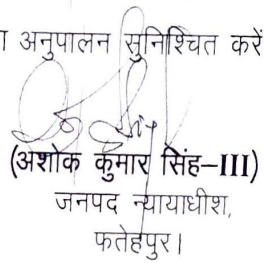 अनुपालन सुनिश्चित करें
(अशोक कुमार सिंह–III)
जनपद न्यायाधीश,
फतेहपुर।